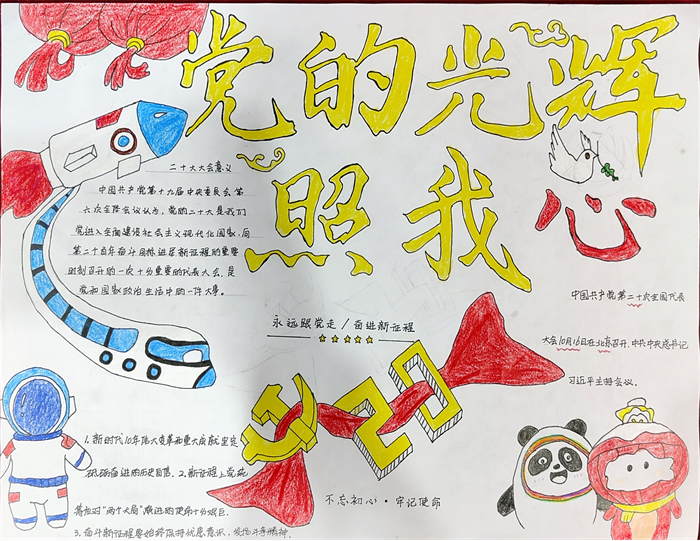 党的光辉
照我心
二十大大会意义
中国共产党第十九届中央委员会第
六次全体会议认为，党的二十大是我们
党进入全面建设社会主义现代化国家，向
第二个百年奋斗目标进军新征程的重要
时刻召开的一次十分重要的代表大会，是
党和国家政治生活中的一件大事。
中国共产党第二十次全国代表
大会10月16日在北京召开，中共中央总书记
习近平主持会议。
永远跟党走/奋进新征程
20
不忘初心·牢记使命
1、新时代10年伟大变革和重大成就坚定
奋进的历史自信。2、新征程上
"两个大局"的使命十分艰巨。
3、奋斗新征程要始终保持忧患意识，发扬斗争精神。